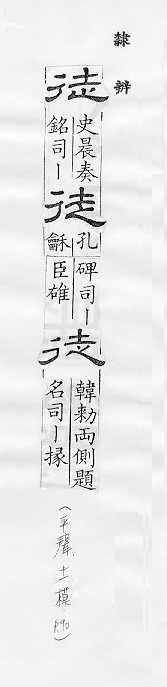 隸辨
徒
史晨奏
銘司丨
徒
孔龢
碑司丨
臣雄
徒
韓勑両側題
名司丨掾
(平聲 十一模 p.90)